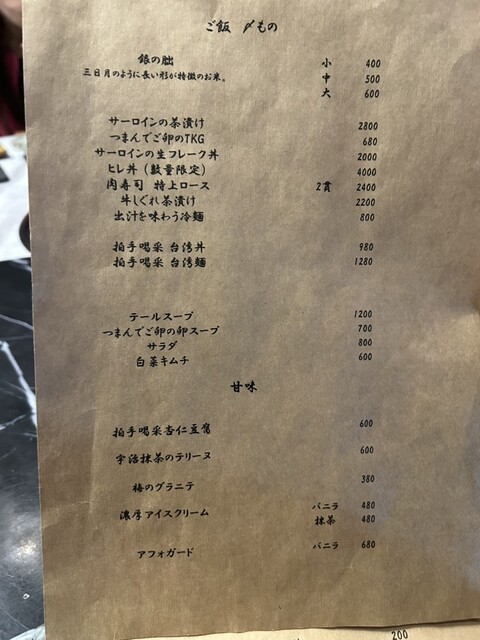 ご飯 〆もの
銀の朏 小 400
三日月のように長い形が特徴のお米。 中 500
大 600
サーロインの茶漬け 2800
つまんでご卵のTKG 680
サーロインの生フレーク丼 2000
ヒレ丼(数量限定) 4000
肉寿司 特上ロース 2貫 2400
牛しぐれ茶漬け 2200
出汁を味わう冷麺 800
拍手喝采 台湾丼 980
拍手喝采 台湾麺 1280
テールスープ 1200
つまんでご卵の卵スープ 700
サラダ 800
白菜キムチ 600
甘味
拍手喝采杏仁豆腐 600
宇治抹茶のテリーヌ 600
梅のグラニテ 380
濃厚アイスクリーム バニラ 480
抹茶 480
アフォガード バニラ 680
200